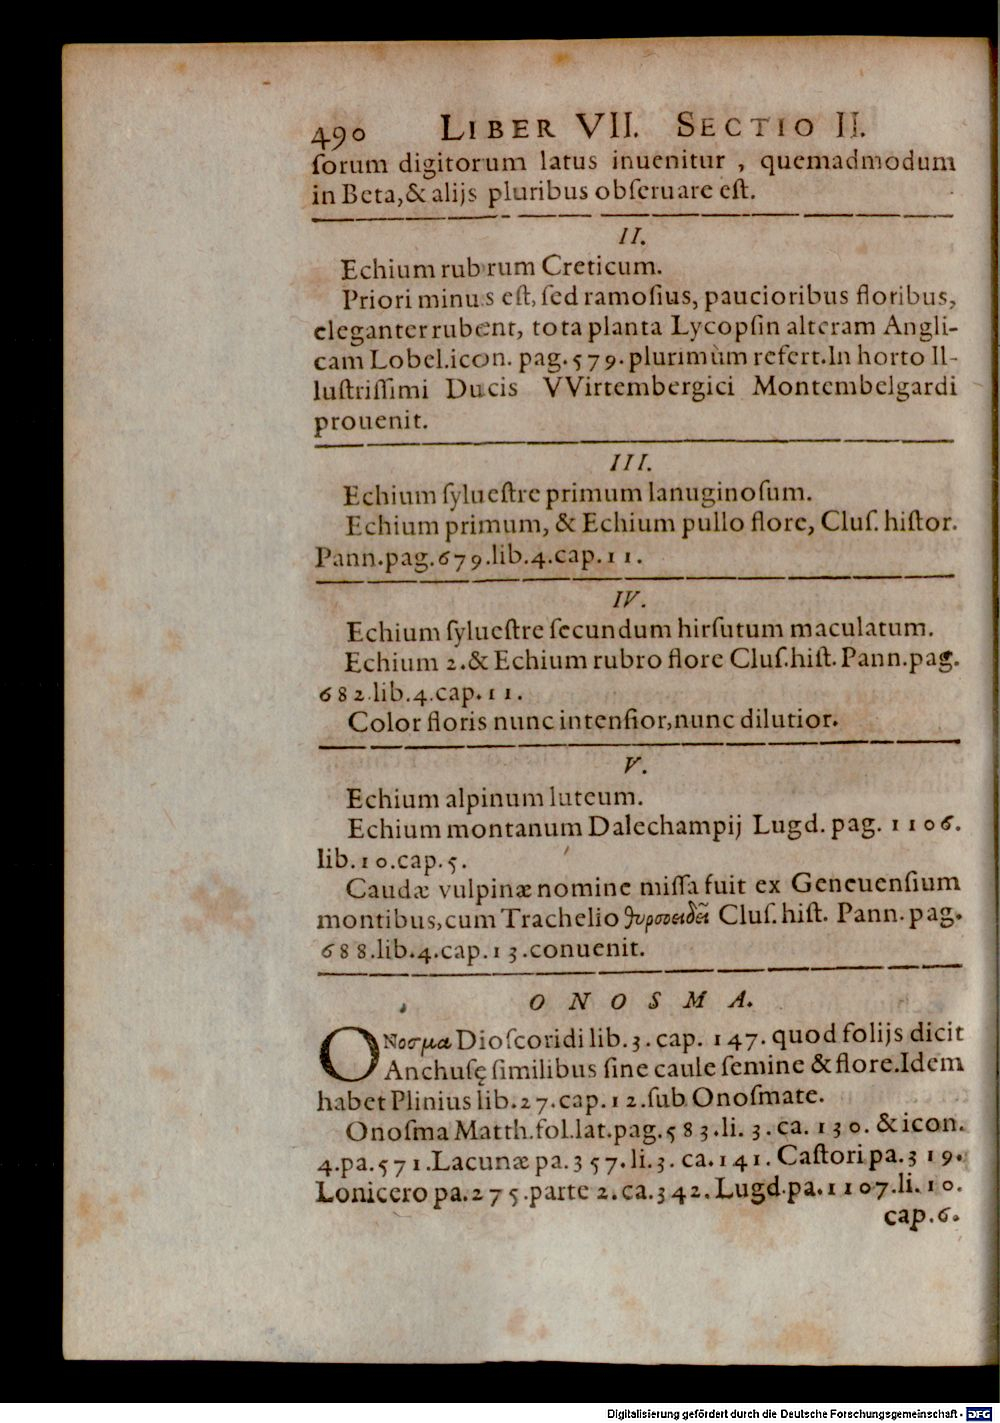 490 LIBER VII. SECTIO II.
ſorum digitorum latus inuenitur , quemadmodum
in Beta,& alijs pluribus obſeruare eſt.
II.
Echium rubrum Creticum.
Priori minus eſt, ſed ramoſius, paucioribus floribus,
eleganter rubent, tota planta Lycopſin alteram Angli-
cam Lobel.icon. pag.579.plurimùm refert.In horto Il-
luſtriſſimi Ducis VVirtembergici Montembelgardi
prouenit.
III.
Echium ſylueſtre primum lanuginoſum.
Echium primum, & Echium pullo flore, Cluſ. hiſtor.
Pann.pag.679.lib.4.cap.11.
IV.
Echium ſylueſtre ſecundum hirſutum maculatum.
Echium 2.& Echium rubro flore Cluſ.hiſt. Pann.pag.
682.lib.4.cap.11.
Color floris nunc intenſior,nunc dilutior.
V.
Echium alpinum luteum.
Echium montanum Dalechampij Lugd. pag. 1106.
lib.10.cap.5.
Caudæ vulpinæ nomine miſſa fuit ex Geneuenſium
montibus,cum Trachelio θυρσοειδεῖ Cluſ. hiſt. Pann. pag.
688.lib.4.cap.13.conuenit.
ONOSMA.
ONοσμα Dioſcoridi lib.3.cap. 147. quod folijs dicit
Anchuſę ſimilibus ſine caule ſemine & flore.Idem
habet Plinius lib.27.cap.12.ſub Onoſmate.
Onoſma Matth.fol.lat.pag.583.li.3.ca.130. & icon.
4.pa.571.Lacunæ pa.357.li.3. ca.141. Caſtori pa.319.
Lonicero pa.275.parte 2.ca.342.Lugd.pa.1107.li.10.
cap.6.
Digitalisierung gefördert durch die Deutsche Forschungsgemeinschaft - DFG